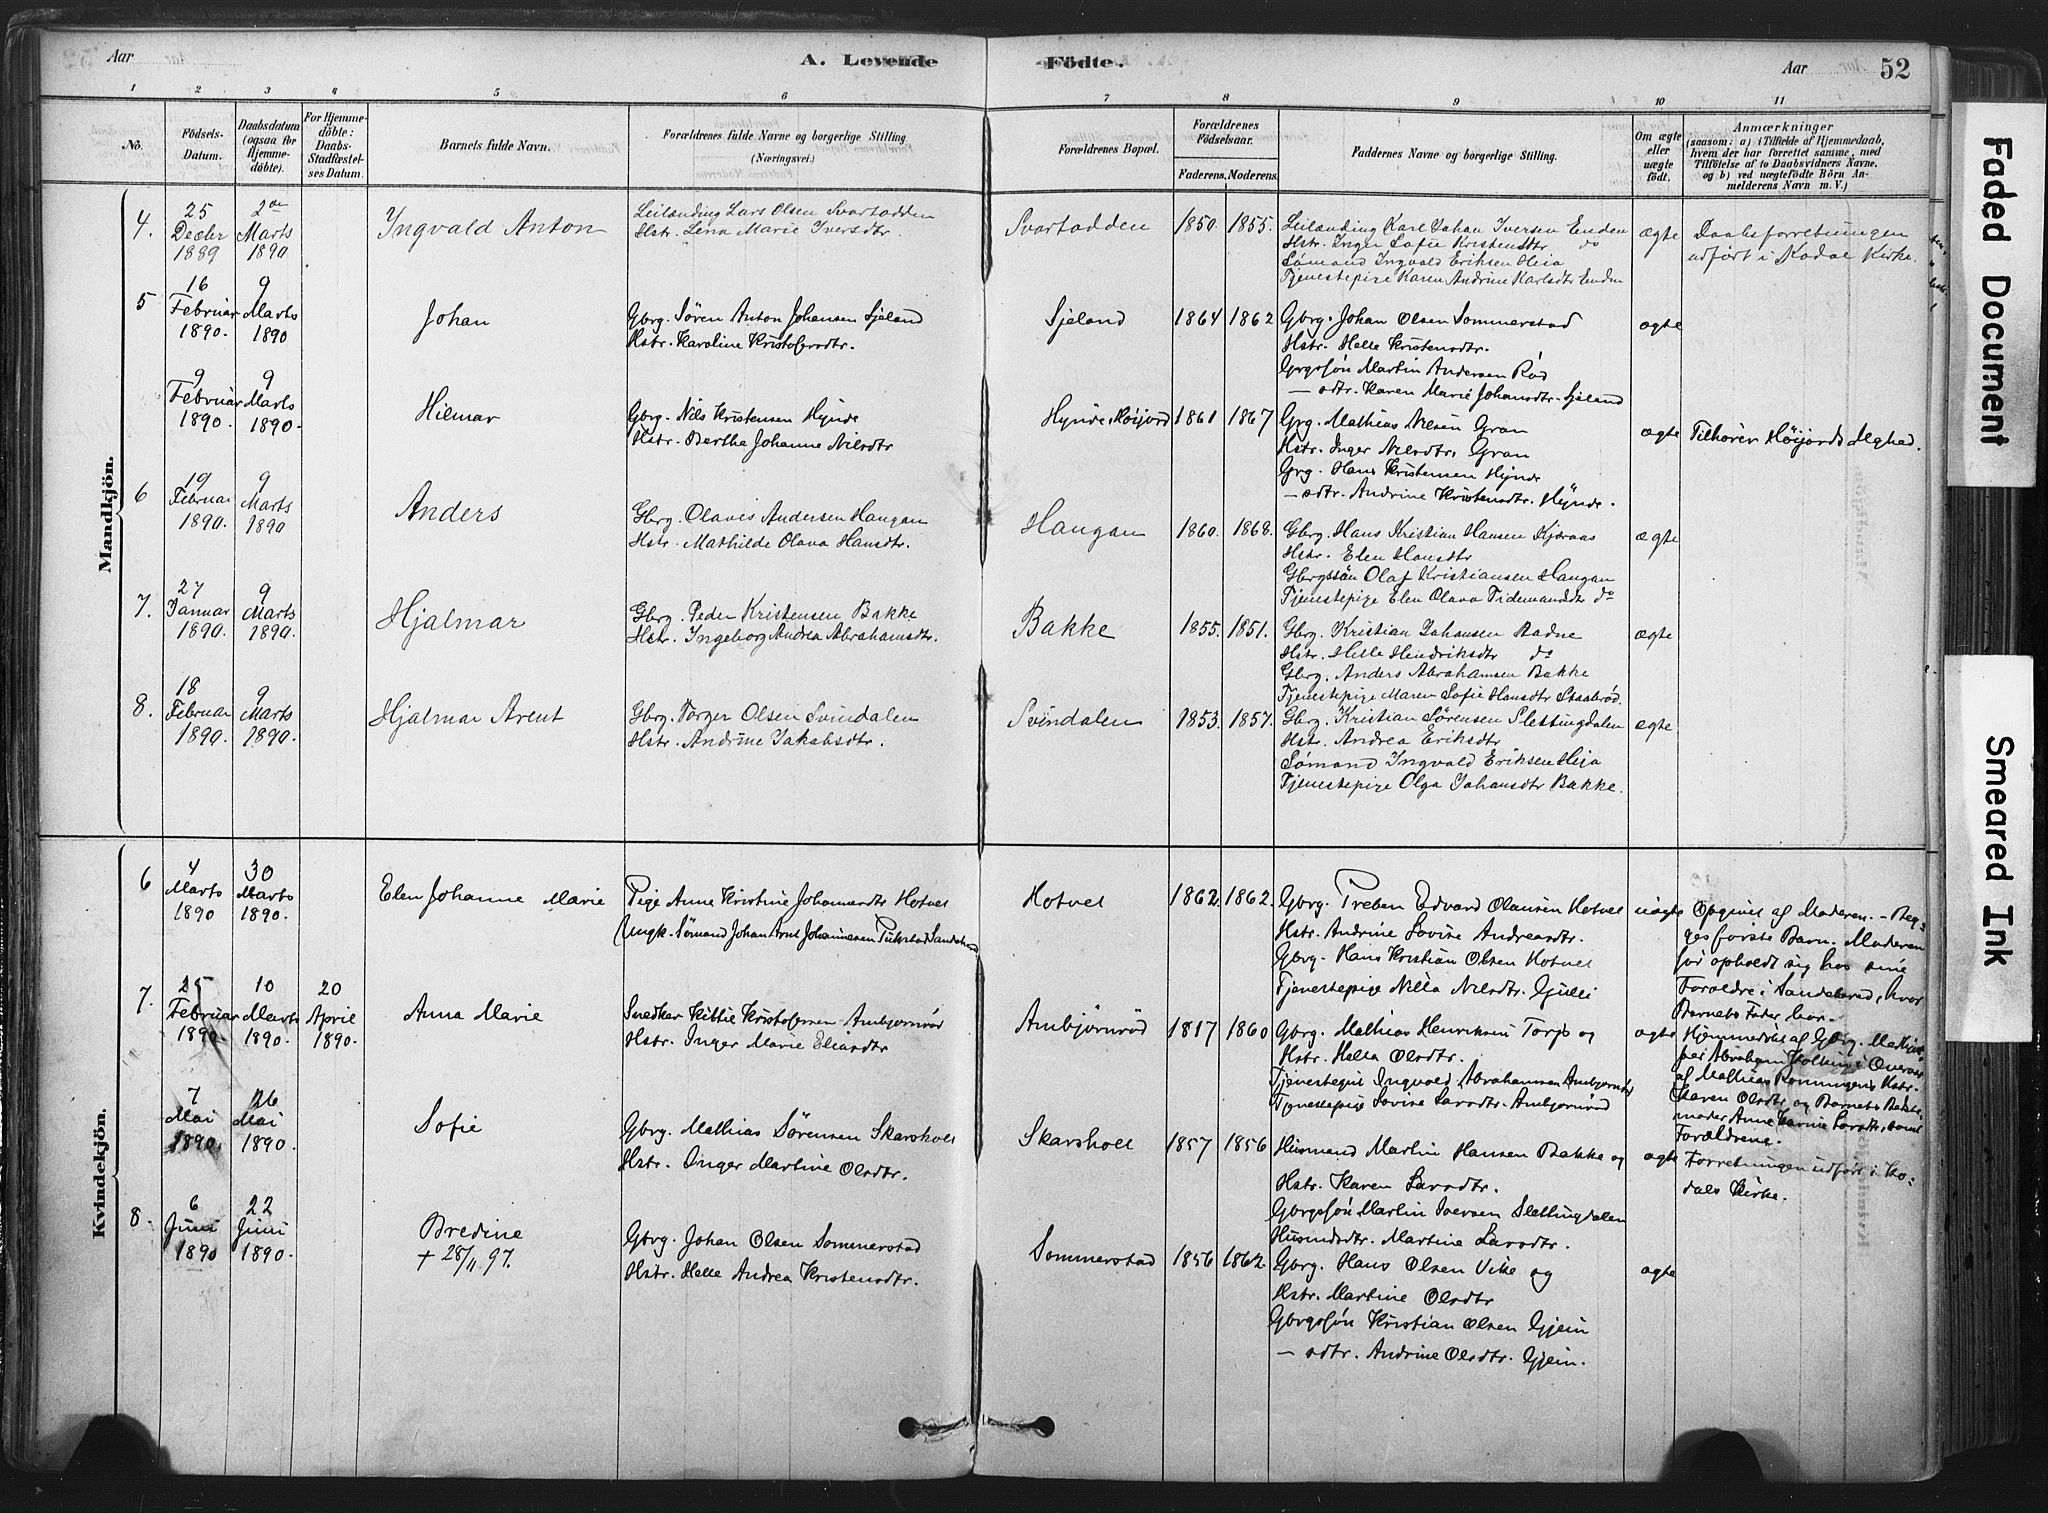 Aar
A. Levende
Födte.
Aar
52
1 2 3 4 5 6 7 8 9 10 11
No.
Födsels-
Datum.
Daabsdatum
(ogsaa for
Hjemme-
döbte).
For Hjemme-
döbte:
Daabs-
Stadfæstel-
ses Datum.
Barnets fulde Navn.
Forældrenes fulde Navne og borgerlige Stilling
(Næringsvei.)
Forældrenes Bopæl.
Forældrenes
Födselsaar.
Faderens. Moderens.
Faddernes Navne og borgerlige Stilling.
Om ægte
eller
uægte
födt.
Anmærkninger
(saasom: a) i Tilfælde af Hjemmedaab,
hvem der har forrettet samme, med
Tilföielse af to Daabsvidners Navne,
og b) ved uægtefödte Börn An-
melderens Navn m. V.)
Mandkjön.
4.
25
Decbr
1889
2den
Marts
1890
Ingvald Anton
Leilænding Lars Olsen Svartadden
Hstr. Lena Marie Iversdtr.
Svartadden
1850. 1855.
Leilænding Karl Johan Iversen Enden
Hstr. Inger Sofie Kristensdtr do
Sømand Ingvald Eriksen Heia
Tjenestepige Karen Andrine Karlsdtr Enden
ægte
Daabsforretningen
udført i Kodal Kirke.
5
16
Februar
1890.
9
Marts
1890
Johan
Gbrg. Søren Anton Johansen Sjeland
Hstr. Karoline Kristofersdtr.
Sjeland
1864 1862
Gbrg. Johan Olsen Sommerstad
Hstr. Helle Kristensdtr.
Gbrgsøn Martin Andersen Rød
— sdtr. Karen Marie Johansdtr. Sjeland
ægte
9
Februar
1890.
9
Marts
1890.
Hilmar
Gbrg. Nils Kristensen Hynde
Hstr. Berthe Johanne Nilsdtr
Hynde, Høijord
1861 1867
Grg. Mathias Nilsen Gran
Hstr. Inger Nilsdtr. Gran
Grg. Hans Kristensen Hynde
— sdtr. Andrine Kristensdtr. Hynde.
ægte
Tilhører Høijords Mghed.
6
19
Februar
1890.
9
Marts
1890
Anders
Gbrg. Olavis Andersen Haugan
Hstr. Mathilde Olava Hansdtr.
Haugan
1860. 1868.
Gbrg. Hans Kristian Hansen Kjøraas
Hstr. Elen Hansdtr
Gbrgssøn Olaf Kristiansen Haugan
Tjenestepige Elen Olava Tidemandsdtr do
ægte
7.
27
Januar
1890.
9
Marts
1890.
Hjalmar
Gbrg. Peder Kristensen Bakke
Hstr. Ingeborg Andrea Abrahamsdtr.
Bakke
1855. 1851.
Gbrg. Kristian Johansen Aadne
Hstr. Helle Hendriksdtr do
Gbrg. Anders Abrahamsen Bakke
Tjenestepige Maren Sofie Hansdtr Skaabrød.
ægte
8.
18
Februar
1890.
9
Marts
1890.
Hjalmar Arent
Gbrg. Torger Olsen Svindalen
Hstr. Andrine Jakobsdtr.
Svindalen
1853. 1857.
Gbrg. Kristian Sørensen Slettingdalen
Hstr. Andrea Eriksdtr
Sømand Ingvald Eriksen Heia
Tjenestepige Olga Johansdtr Bakke.
ægte
Kvindekjön.
6
4
Marts
1890
30
Marts
1890.
Elen Johanne Marie
Pige Anne Kristine Johannesdtr Hotvet
Ungk. Sømand Johan Arnt Johannesen Pukstad Sandeherred
Hotvet
1862. 1862.
Gbrg. Preben Edvard Olausen Hotvet
Hstr. Andrine Lovise Andreasdtr.
Gbrg. Hans Kristian Olsen Hotvet
Tjenestepige Nilla Nilsdtr. Gjulli
uægte
Opgivet af Moderen. – Beg-
ges første Barn. Moderen
har opholdt sig hos sine
Foreldre i Sandeherred, hvor
Barnets Fader bor.
7.
25
Februar
1890
10
Marts
1890.
20
April
1890.
Anna Marie
Snedker Kittil Kristofersen Ambjørnrød
Hstr. Inger Marie Eliasdtr
Ambjørnrød
1817 1860
Gbrg. Mathias Henriksen Torp og
Hstr. Helle Olsdtr.
Tjenestegut Ingvald Abrahamsen Ambjørnrød
Tjenestepige Lovise Larsdtr. Ambjørnrød
ægte
Hjemmedøbt af Gbrg. Mathias
af Mathias Rønningens Hstr.
Karen Olsdtr og Barnets Bedste
moder Anne Karine Larsdtr, samt
Forældrene.
7
Mai
1890.
26
Mai
1890
Sofie
Gbrg. Mathias Sørensen Skarsholt
Hstr. Inger Martine Olsdtr.
Skarsholt
1857 1856
Husmand Martin Hansen Bakke og
Hstr. Karen Larsdtr.
Gbrgsøn Martin Iversen Slettingdalen
Husmdsdtr. Martine Larsdtr.
ægte
Forretningen udført i Ko-
dals Kirke.
8.
6
Juni
1890
22
Juni
1890.
Bredine
+ 28/11 97.
Gbrg. Johan Olsen Sommerstad
Hstr. Helle Andrea Kristensdtr.
Sommerstad
1856 1862
Gbrg. Hans Olsen Vike og
Hstr. Martine Olsdtr
Gbrgssøn Kristian Olsen Gjein
— sdtr. Andrine Olsdtr. Gjein.
ægte
Faded Document
Smeared Ink